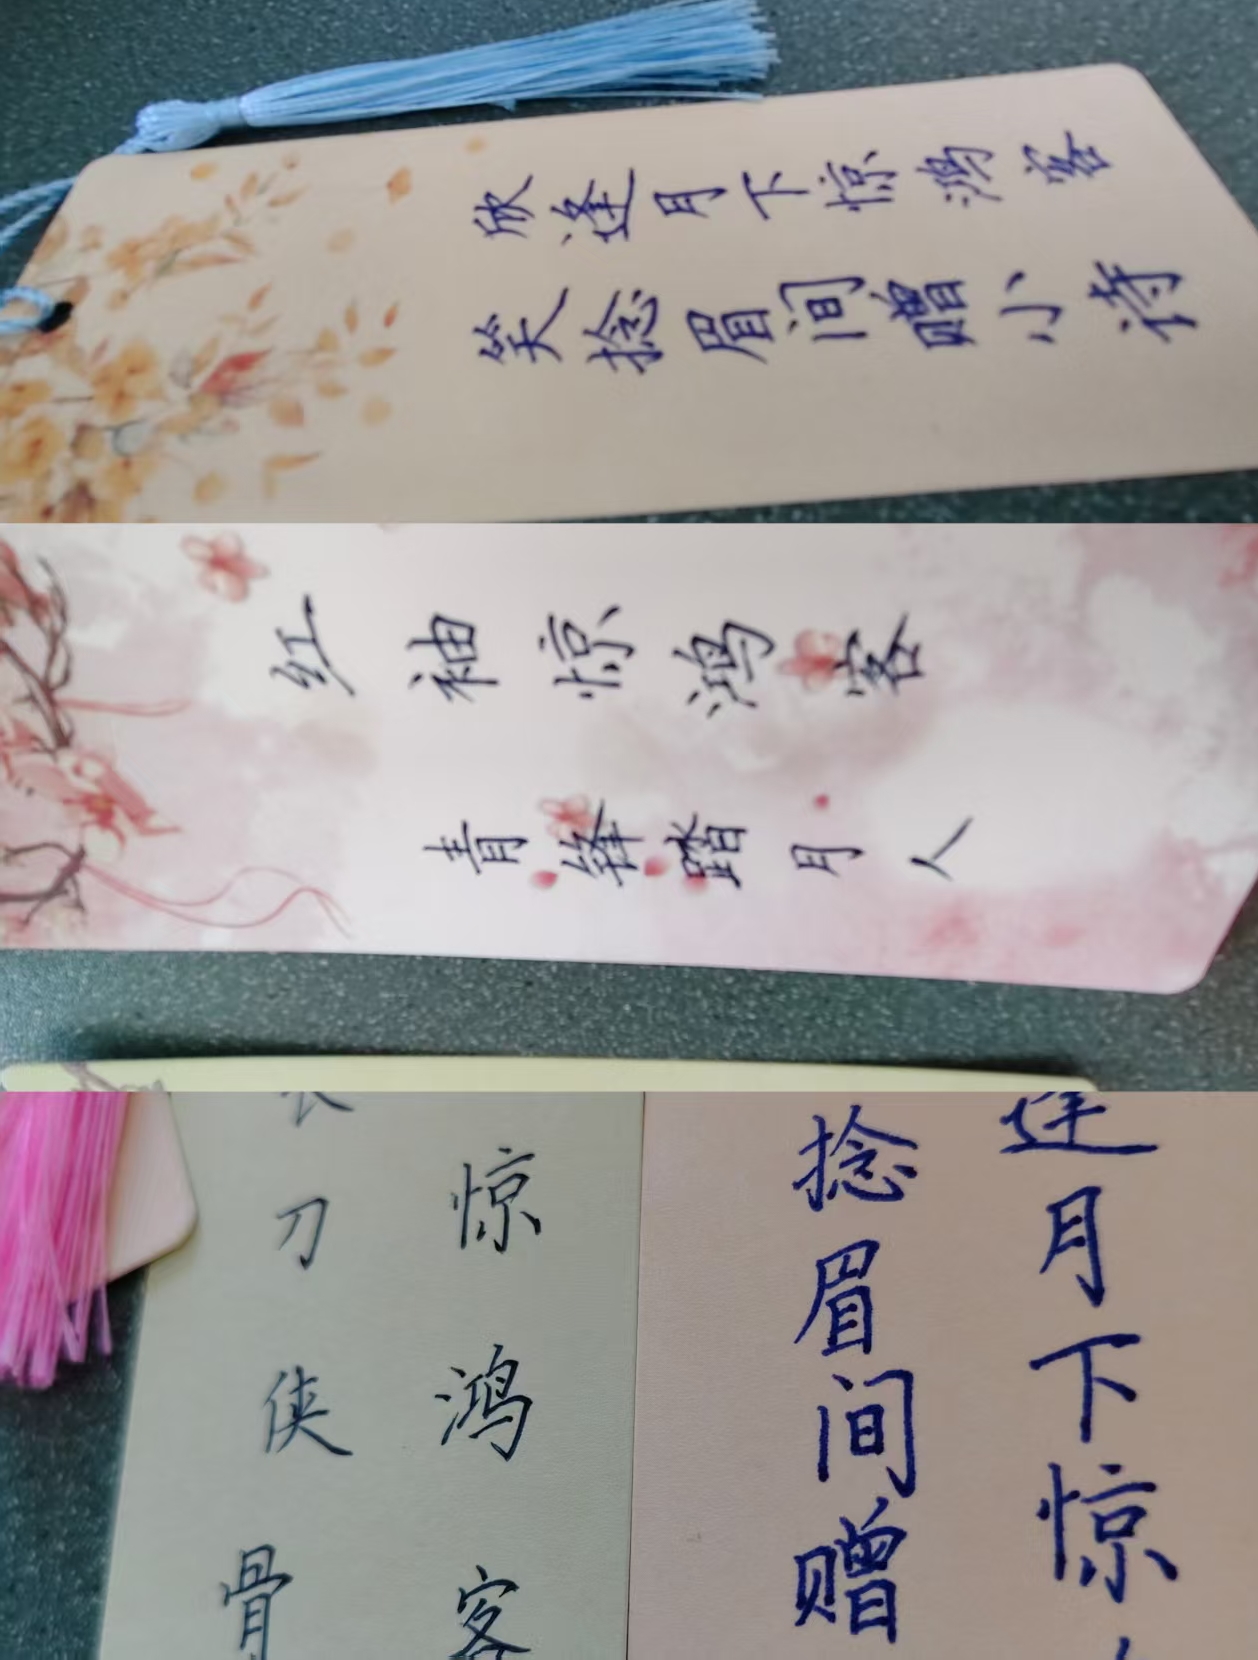 欣逢月下惊鸿客
笑捻眉间赠小诗
红袖惊鸿客
青锋踏月人
惊鸿客
刀侠骨
逢月下惊
捻眉间赠